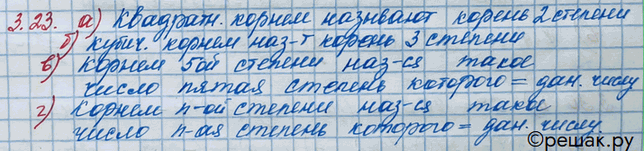 3.23. а) Квадратн. корнем называют корень 2 степени
б) кубич. корнем наз-т корень 3 степени
в) корнем 5ой степени наз-ся такое
число пятая степень которого = дан. числу
г) Корнем n-ой степени наз-ся такое
число n-ая степень которого = дан. числу.
©решак.ру